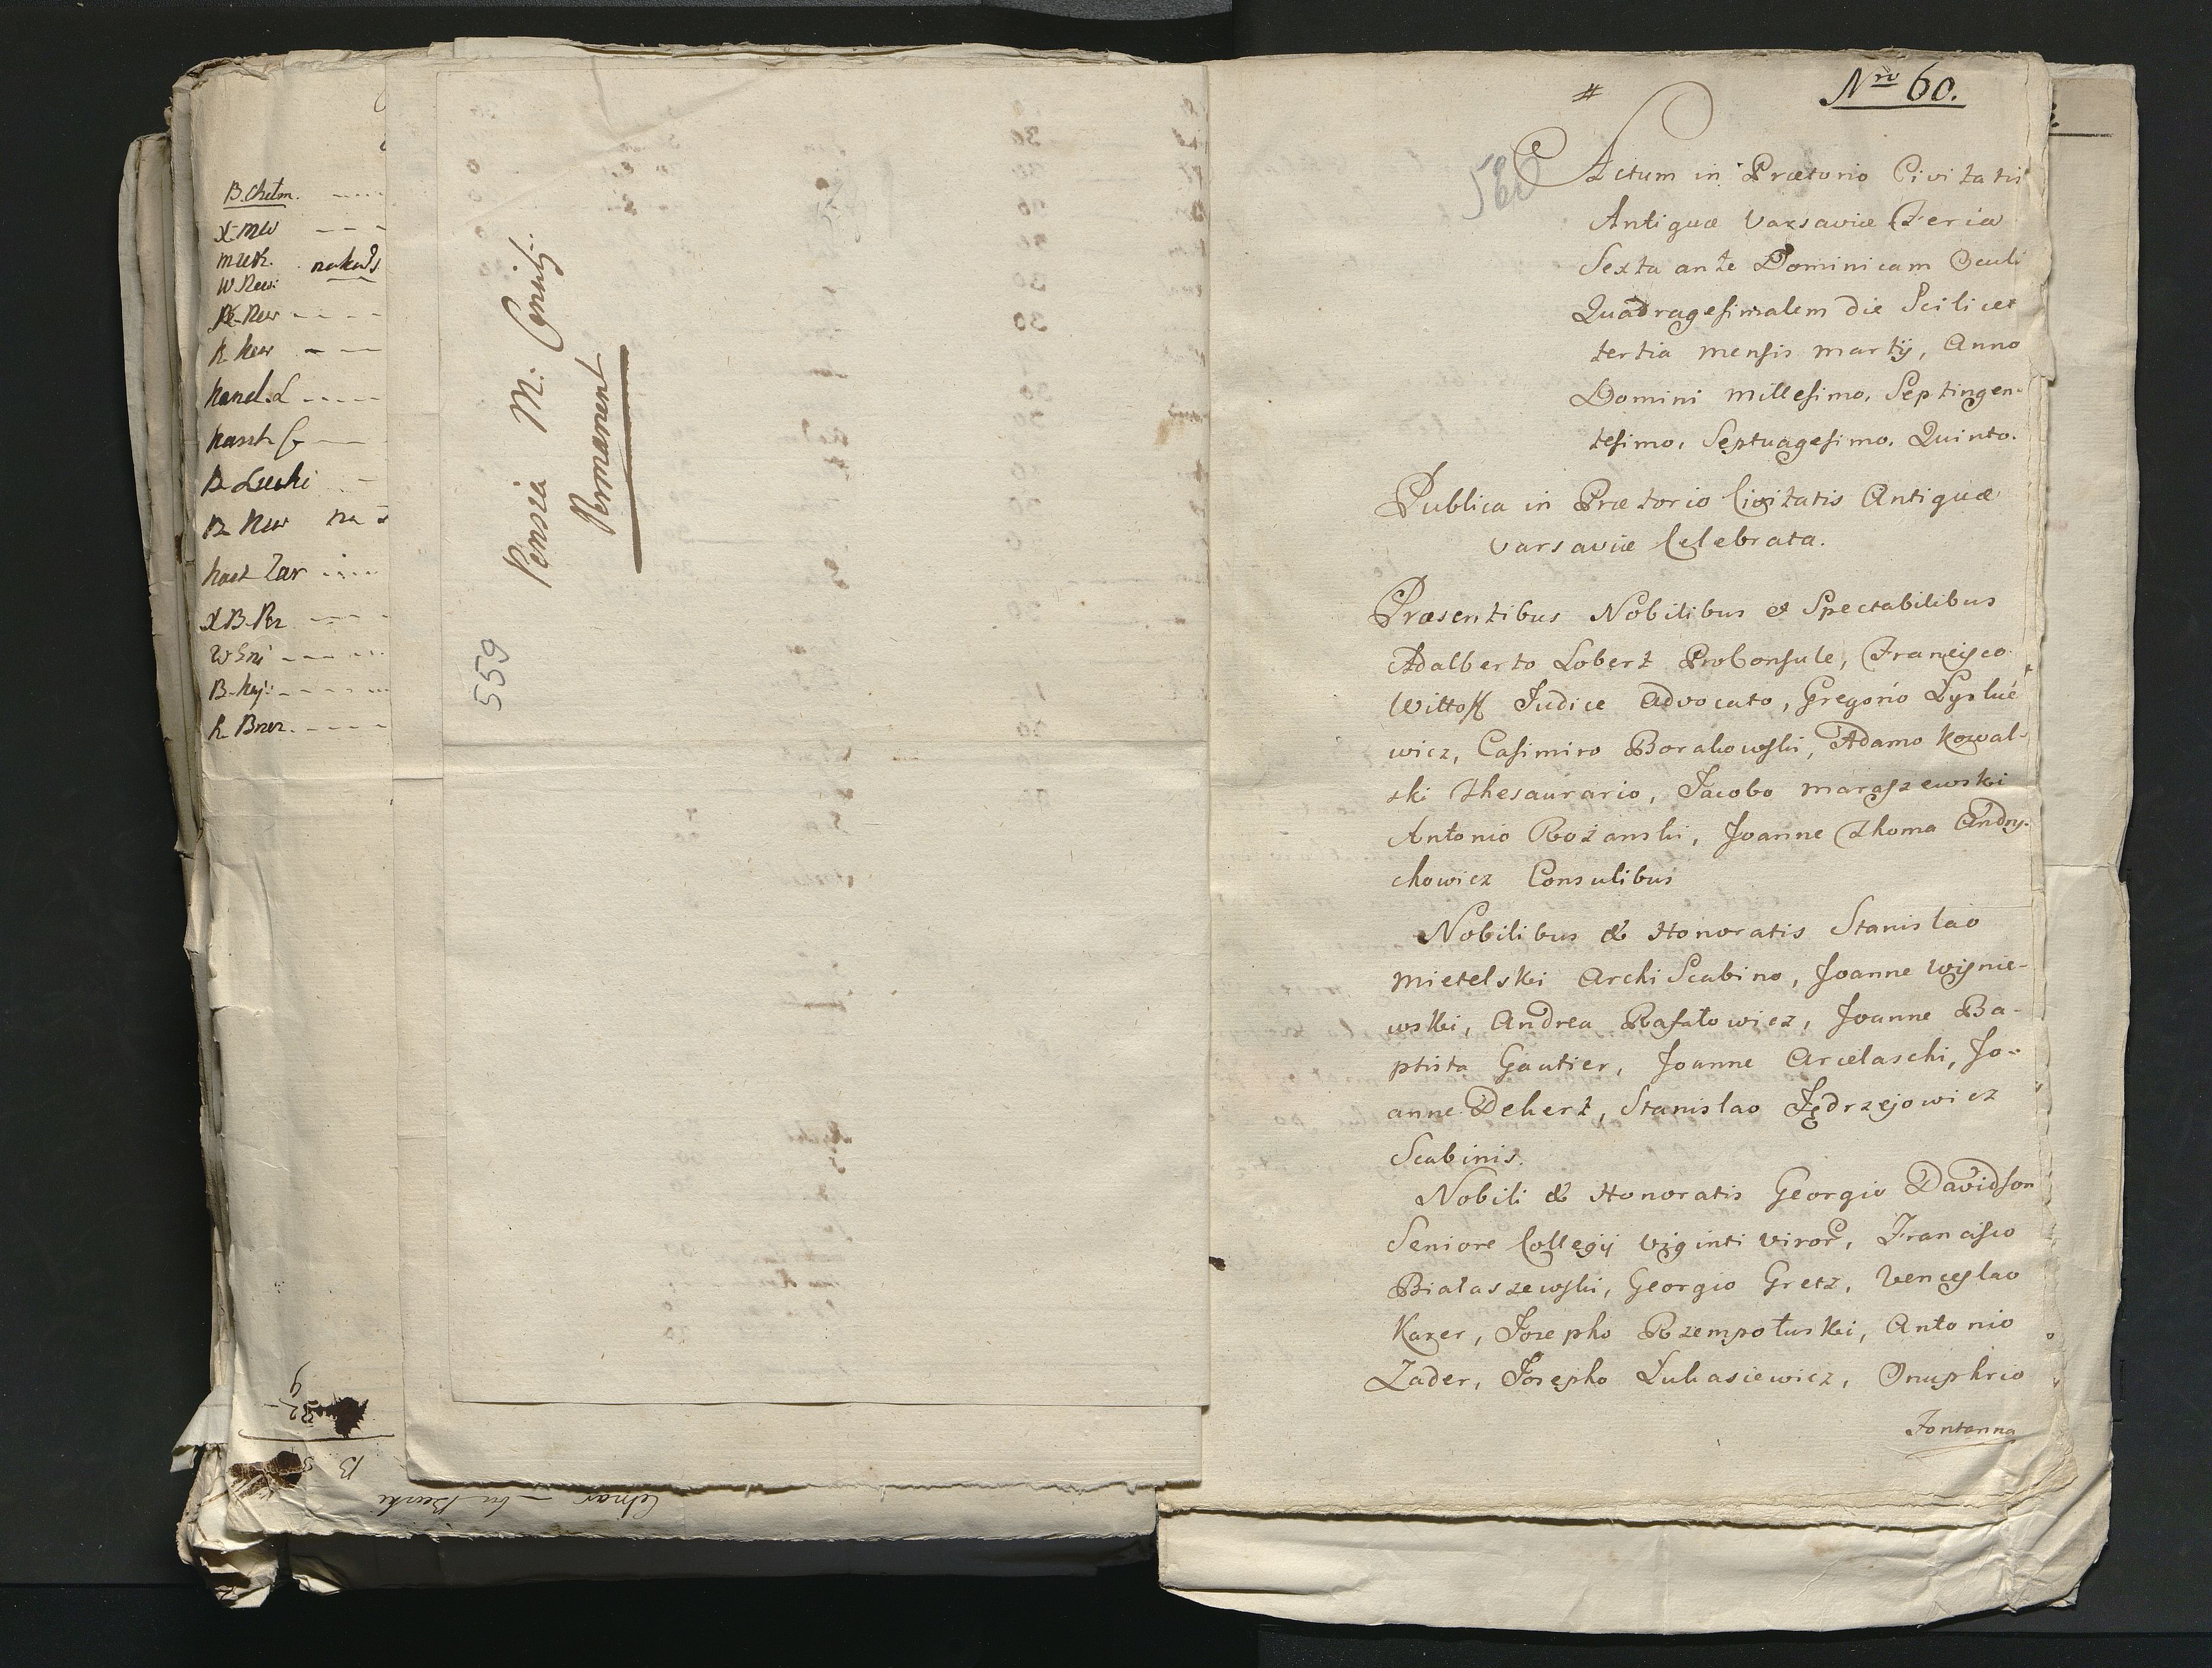 B. Chełm.
X. mw
W Rew:
K. Kew
Kand. L
B Łucki
X B. Brz
K. Brzez.
Pensia M.
Permanent
559
Nro 60.
#
560
Actum in Prætorio Civitatis
Antiquæ Varsaviæ Feria
Sexta ante Dominicam Oculi
Quadragesimalem die Scilicet
tertia mensis martij, Anno
Domini millesimo, Septingen-
tesimo, Septuagesimo, Quinto.
Publica in Prætorio Civitatis Antiquæ
Varsaviæ Celebrata.
Præsentibus Nobilibus et Spectabilibus
Adalberto Lobert ProConsule, Francisco
Wittoff Judice Advocato, Gregorio Łyskie
wicz, Casimiro Borakowski, Adamo Kowal-
ski Thesaurario, Jacobo maraszewski
Antonio Rożanski, Joanne Thoma Andry-
chowicz Consulibus
Nobilibus & Honoratis Stanislao
mietelski ArchiScabino, Joanne Wisnie-
wski, Andrea Rafałowicz, Joanne Ba-
ptista Gautier, Joanne Arcelaschi, Jo-
anne Dehert, Stanislao Jędrzejowicz
Scabinis.
Nobili & Honoratis Georgio Davidson
Seniore Collegij Viginti Viror, Francisco
Białaszewski, Georgio Gretz, Venceslao
Kazer, Josepho Rzempołuski, Antonio
Zader, Josepho Łukasiewicz, Onuphrio
Fontanna